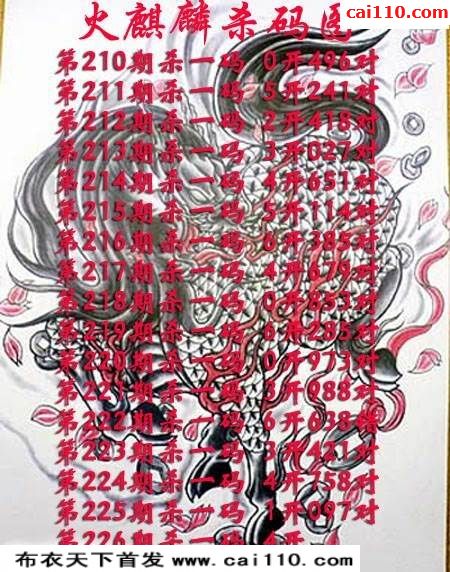 cai110.com
火麒麟杀码
第210期杀一码 0开496对
第211期杀一码 5开241对
第212期杀一码 2开418对
第213期杀一码 3开027对
第214期杀一码 4开651对
第215期杀一码 5开114对
第216期杀一码 6开385对
第217期杀一码 4开679对
第218期杀一码 0开853对
第219期杀一码 6开285对
第220期杀一码 0开973对
第221期杀一码 3开988对
第222期杀一码 6开638错
第223期杀一码 3开421对
第224期杀一码 4开758对
第225期杀一码 1开097对
第226期杀一码 4开
布衣天下首发 www.cai110.com